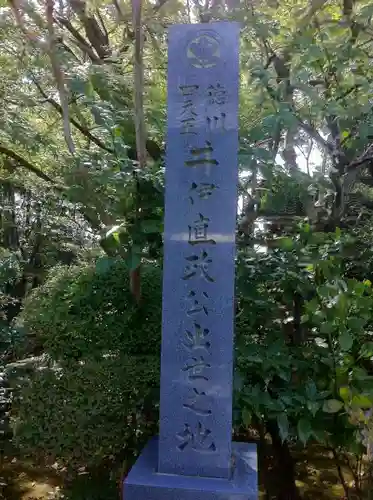 徳川
四天王
井伊直政公出世之地